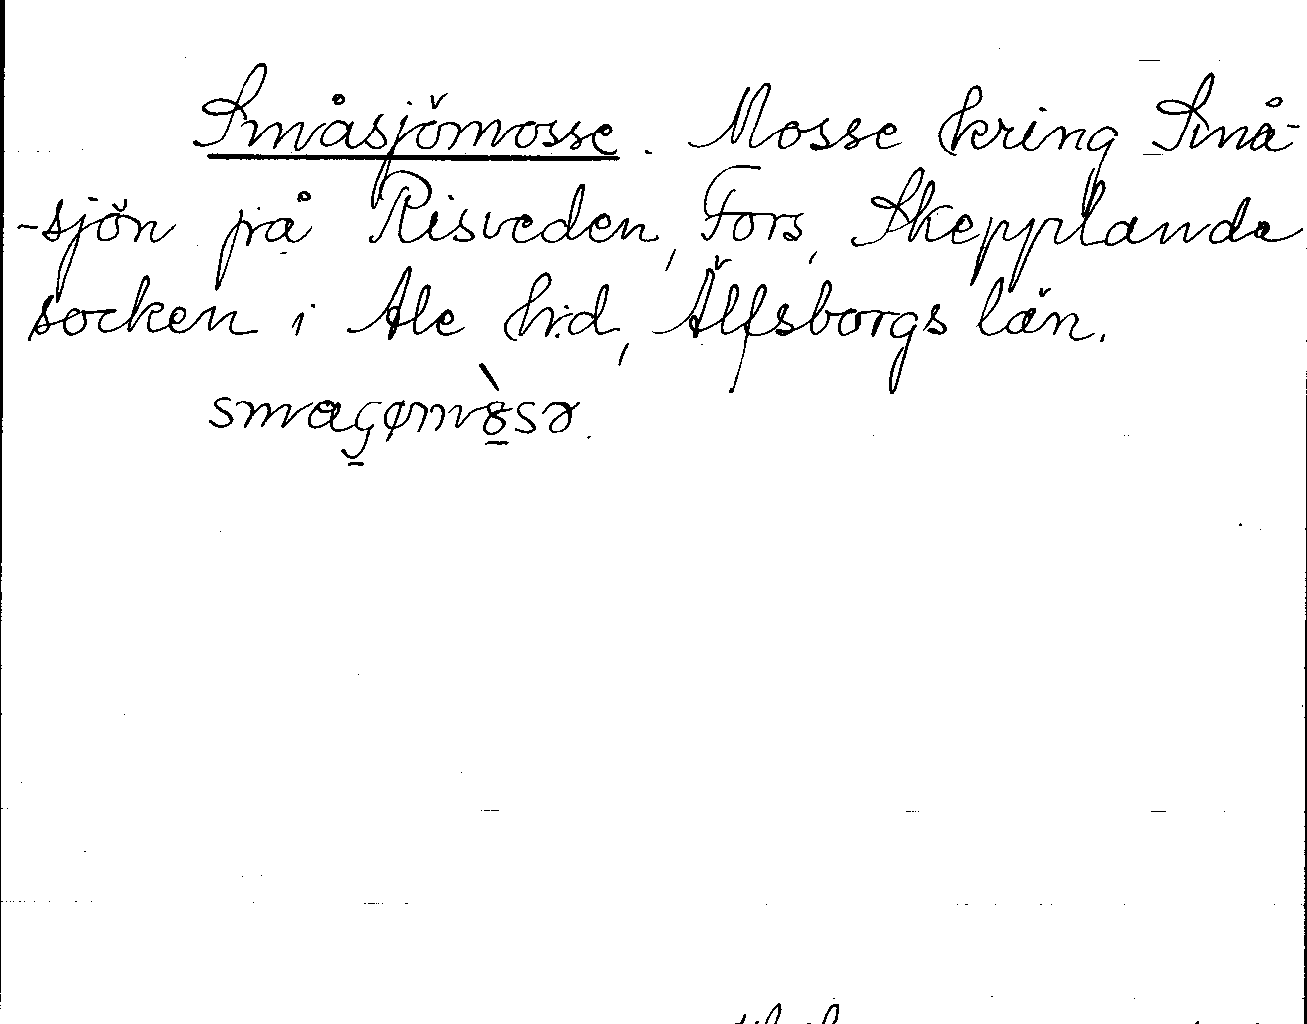 Småsjömosse. Mosse kring Små-
-sjön på Risveden, Fors, Skepplanda
socken i Ale hd, Älfsborgs län.